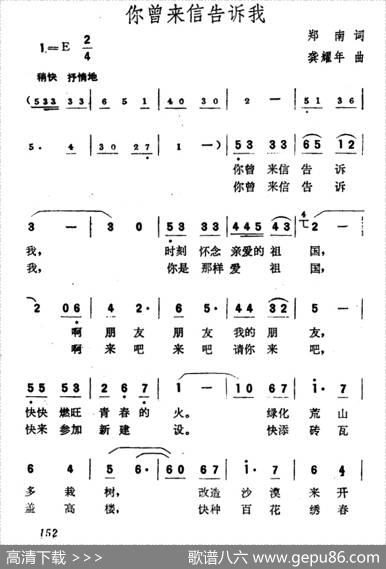 你曾来信告诉我
1=E 2/4
郑南 词
龚耀年 曲
稍快 抒情地
(533 33 | 6 5 1 | 40 30 | 2 — | 51 36
5. 4 | 30 27 | 1 —) | 53 33 | 65 12 |
你曾 来信 告 诉
你曾 来信 告 诉
3 — | 3 0 | 53 33 | 445 43 | 2 — |
我, 时刻 怀念 亲爱的 祖 国,
我, 你是 那样 爱 祖 国,
2 06 | 4 2. | 6 5. | 44 32 | 5 — |
啊 朋友 朋友 我的 朋 友,
啊 来吧 来吧 请你 来 吧,
55 53 | 2 6 7 | 1 — | 10 67 | 1. 7 |
快快 燃旺 青 春 的 火。 绿化 荒 山
快来 参加 新 建 设。 快添 砖 瓦
6 4 | 5 6. | 60 67 | 1. 7 | 6 4 |
多 栽 树, 改造 沙 漠 来 开
盖 高 楼, 快种 百 花 绣 春
152
高清下载 >>>
歌谱八六 www.gepu86.com